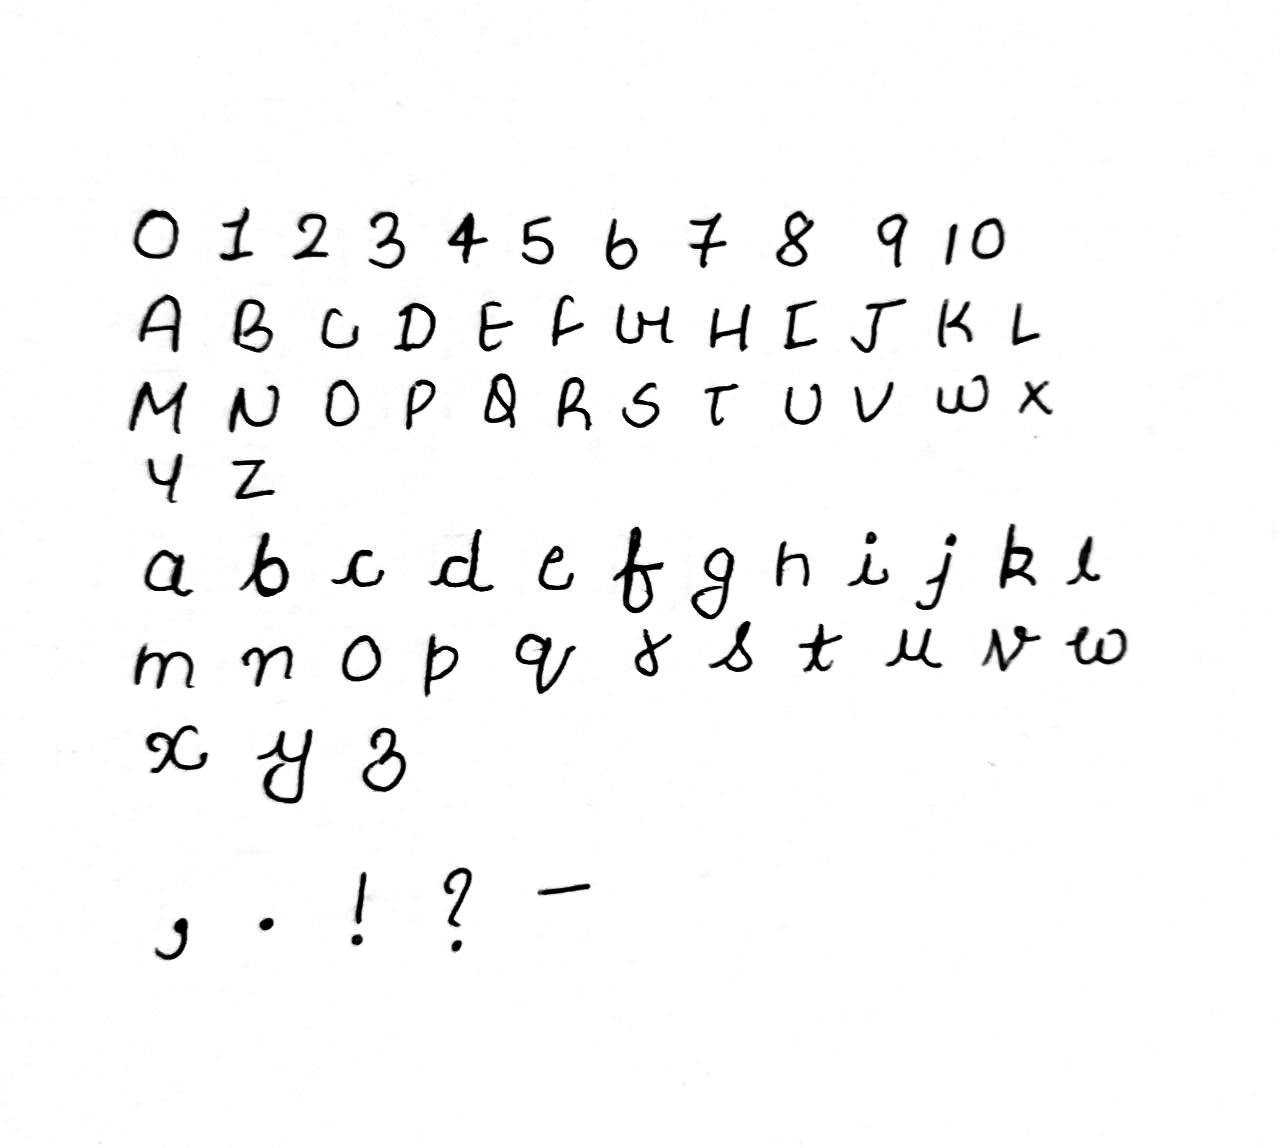 0 1 2 3 4 5 6 7 8 9 10
A B C D E F G H I J K L
M N O P Q R S T U V W X
Y Z
a b c d e f g h i j k l
m n o p q r s t u v w
x y z
, . ! ? -